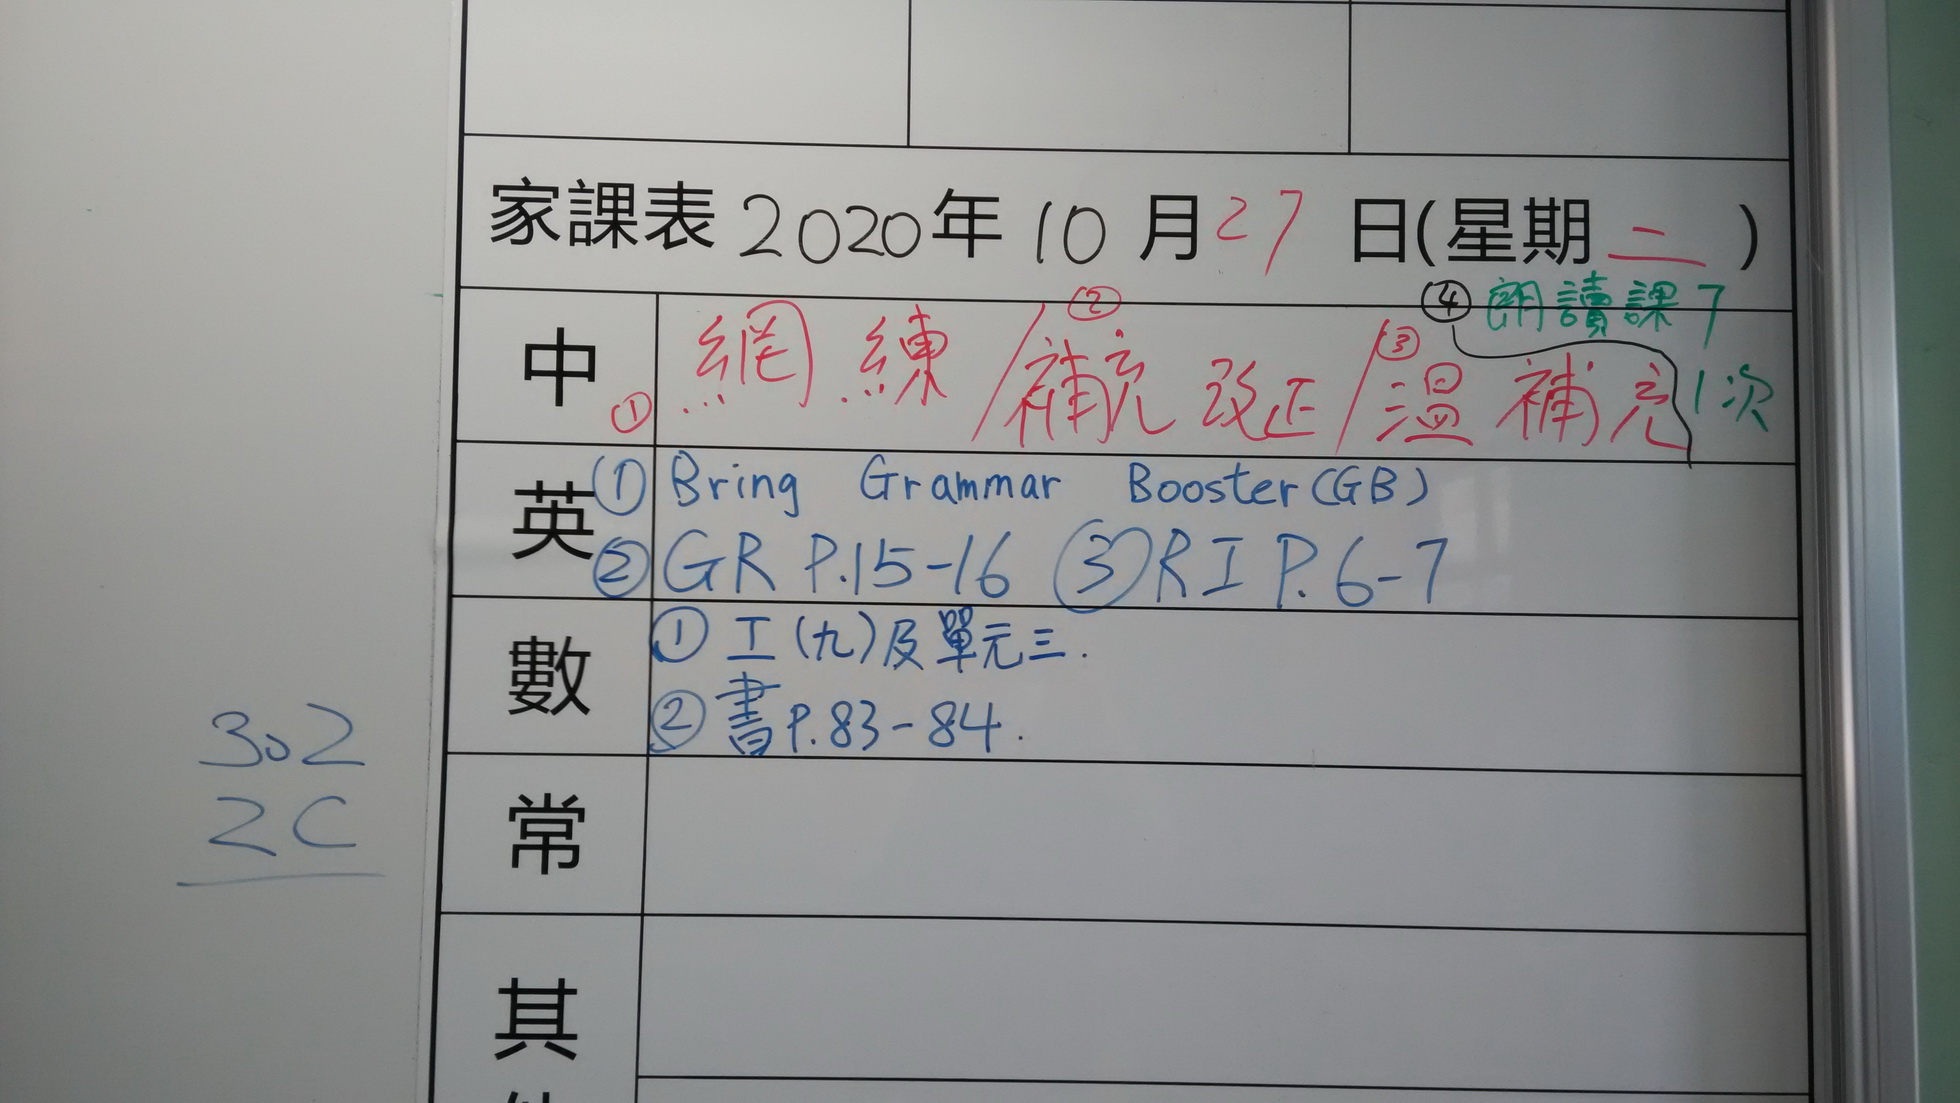 家課表 2020年 10 月 27 日(星期 二 )
中 ① 網練/② 補充改正/③ 溫補充
④ 朗讀課7
1次
英 ① Bring Grammar Booster (GB)
② GR P.15-16 ③ RI P.6-7
數 ① 工(九)及單元三.
② 書P.83-84.
302
2C
常
其